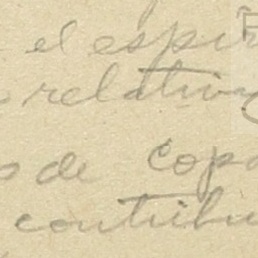 el espir
relativ
s de Copa
contribu